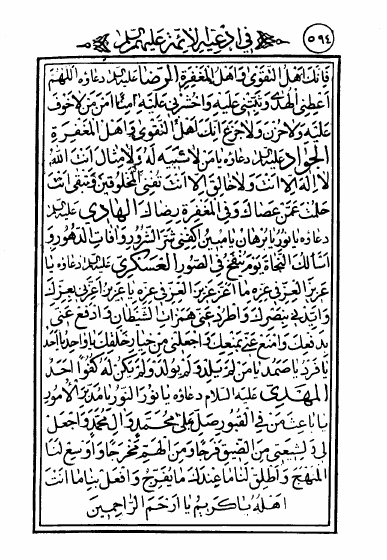 ٥٩٤
في ادعية الائمة عليهم السلم
فانك اهل التقوى واهل المغفرة الرضا عليه السلم دعاؤه اللهم
اعطني الهدى وثبتني عليه واحشرني عليه امنا امن من لا خوف
عليه ولا حزن ولا جزع انك اهل التقوى واهل المغفرة
الجواد عليه السلم دعاؤه يا من لا شبيه له ولا مثال انت الله
لا اله الا انت ولا خالق الا انت تفنى المخلوقين وتبقى انت
حلمت عمن عصاك وفي المغفرة رضاك الهادي عليه السلم
دعاؤه يا نور يا برهان يا مبين اكفني شر الشرور وافات الدهور و
اسالك النجاة يوم ينفخ في الصور العسكري عليه السلم دعاؤه يا
عزيز العز في عزه ما اعز عزيز العز في عزه يا عزيز اعزني بعزك
وايدني بنصرك واطرد عني همزات الشيطان وادفع عني
بدفعك وامنع عني بمنعك واجعلني من خيار خلقك يا واحد يا احد
يا فرد يا صمد يا من لم يلد ولم يولد ولم يكن له كفوا احد
المهدي عليه السلام دعاؤه يا نور النور يا مدبر الامور
يا باعث من في القبور صل على محمد وال محمد واجعل
لي ولشيعتي من الضيق فرجا ومن الهم مخرجا واوسع لنا
المنهج واطلق لنا ما عندك ما يفرج وافعل بنا ما انت
اهله يا كريم يا ارحم الراحمين